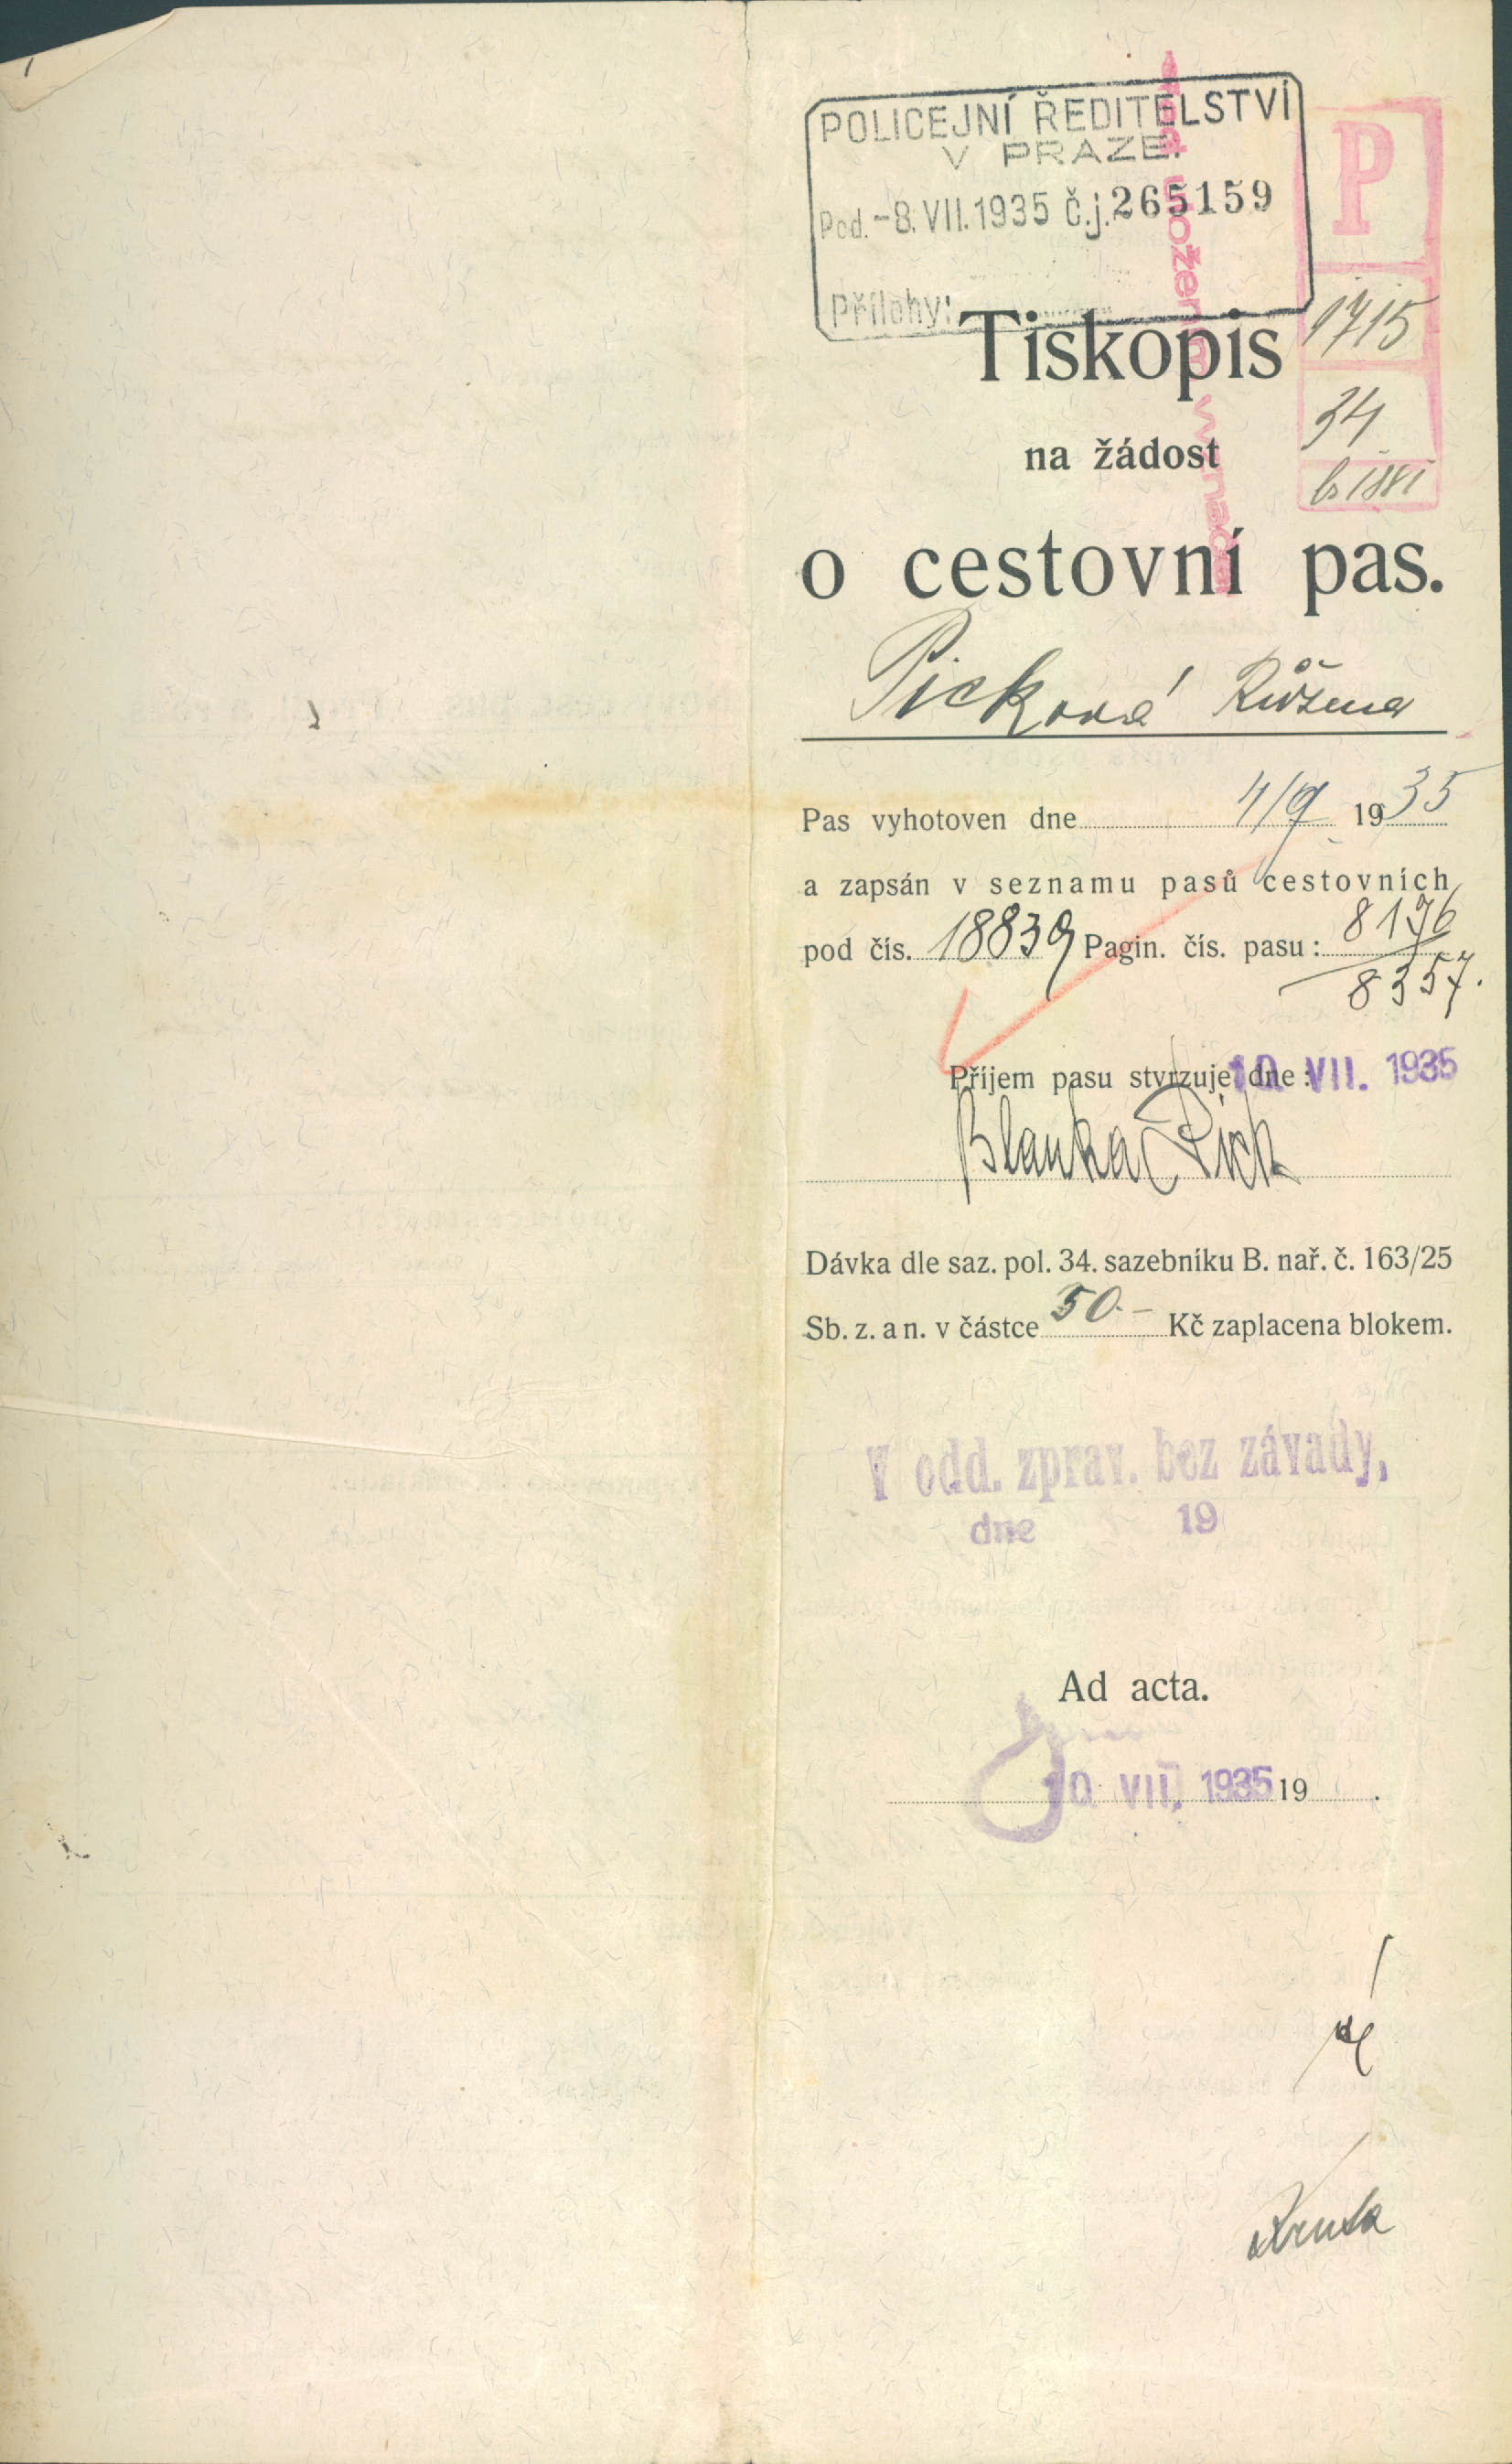 POLICEJNÍ ŘEDITELSTVÍ
V PRAZE.
Pod. -8. VII. 1935 č.j. 265159
Přílohy:
P
1715
34
Tiskopis
na žádost
o cestovní pas.
Picková Růžena
Pas vyhotoven dne 1935
a zapsán v seznamu pasů cestovních
pod čís. 18839 Pagin. čís. pasu: 8196
8357.
Příjem pasu stvrzuje dne: 10. VII. 1935
Blanka Pick
Dávka dle saz. pol. 34. sazebníku B. nař. č. 163/25
Sb. z. a n. v částce 50.- Kč zaplacena blokem.
V odd. zprav. bez závady,
dne 19
Ad acta.
10. VII. 1935 19 .